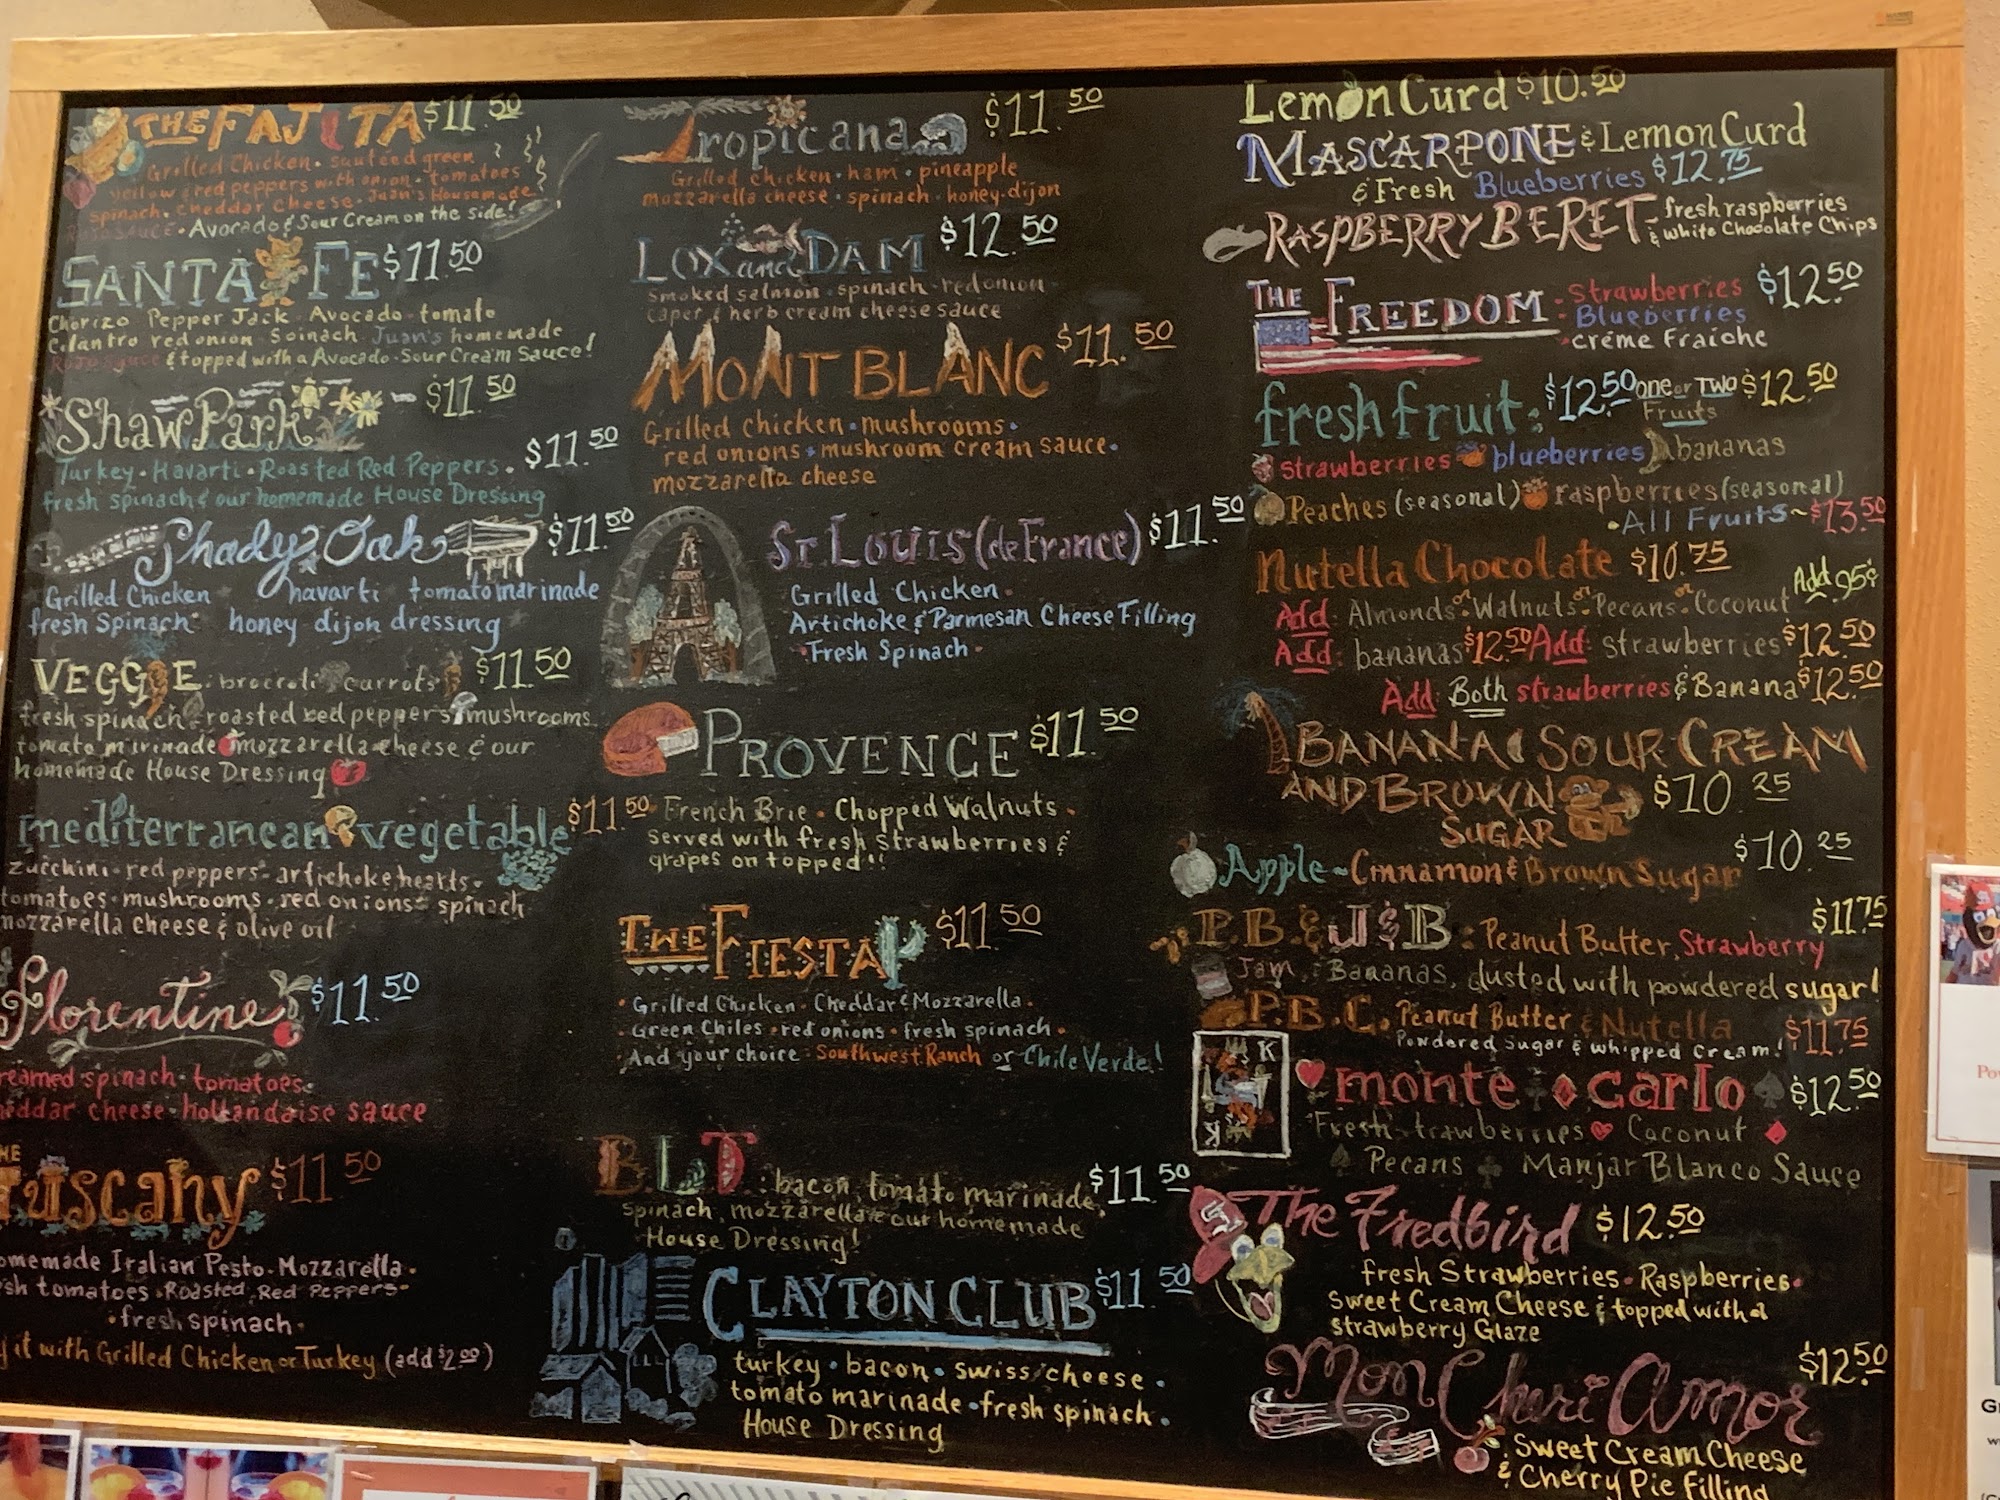 THE FAJITA $11.50
Grilled Chicken • sautéed green
yellow & red peppers with onion • tomatoes
spinach • cheddar cheese • Juan's Housemade
Rojo Sauce • Avocado & Sour Cream on the side!
SANTA FE $11.50
Chorizo Pepper Jack • Avocado • tomato
Cilantro red onion • Spinach Juan's homemade
Rojo sauce & topped with a Avocado • Sour Cream Sauce!
Shaw Park - $11.50
Turkey • Havarti • Roasted Red Peppers • $11.50
fresh spinach & our homemade House Dressing
Shady Oak $11.50
Grilled Chicken havarti tomato marinade
fresh Spinach honey dijon dressing
VEGGIE: broccoli carrots $11.50
fresh spinach roasted red peppers mushrooms
tomato mirinade mozzarella cheese & our
homemade House Dressing
mediterranean vegetable $11.50
zucchini • red peppers • artichoke hearts •
tomatoes • mushrooms • red onions • spinach
mozzarella cheese & olive oil
Florentine $11.50
reamed spinach • tomatoes •
eddar cheese • hollandaise sauce
THE
Tuscany $11.50
omemade Italian Pesto • Mozzarella •
sh tomatoes • Roasted Red Peppers •
• fresh spinach •
it with Grilled Chicken or Turkey (add $2.00)
Tropicana $11.50
Grilled chicken • ham • pineapple
mozzarella cheese • spinach • honey-dijon
LOX and DAM $12.50
smoked salmon • spinach • red onion •
caper & herb cream cheese sauce
MONT BLANC $11.50
Grilled chicken • mushrooms •
red onions • mushroom cream sauce •
mozzarella cheese
St. Louis (de France) $11.50
Grilled Chicken •
Artichoke & Parmesan Cheese Filling
• Fresh Spinach •
PROVENCE $11.50
French Brie • Chopped Walnuts •
served with fresh strawberries &
grapes on topped!!
THE FIESTA $11.50
• Grilled Chicken • Cheddar & Mozzarella •
• Green Chiles • red onions • fresh spinach •
• And your choice • Southwest Ranch or Chile Verde!
B.L.T. : bacon, tomato marinade, $11.50
spinach, mozzarella & our homemade
House Dressing!
CLAYTON CLUB $11.50
turkey • bacon • swiss cheese •
tomato marinade • fresh spinach •
House Dressing
Lemon Curd $10.50
MASCARPONE & Lemon Curd
& Fresh Blueberries $12.75
RASPBERRY BERET - fresh raspberries
& white Chocolate Chips
THE FREEDOM • Strawberries $12.50
• Blueberries
• créme Fraiche
fresh fruit: $12.50 one or Two $12.50
Fruits
strawberries blueberries bananas
Peaches (seasonal) raspberries (seasonal)
• All Fruits ~ $13.50
Nutella Chocolate $10.75
Add: Almonds or Walnuts or Pecans or Coconut Add .95¢
Add: bananas $12.50 Add: strawberries $12.50
Add: Both strawberries & Banana $12.50
BANANA SOUR CREAM
AND BROWN $10.25
SUGAR
Apple ~ Cinnamon & Brown Sugar $10.25
P.B. & J & B : Peanut Butter, Strawberry $11.75
Jam : Bananas, dusted with powdered sugar!
P.B.C. Peanut Butter & Nutella $11.75
Powdered Sugar & whipped cream!
K
monte carlo $12.50
Fresh Strawberries Coconut
Pecans Manjar Blanco Sauce
The Fredbird $12.50
fresh Strawberries • Raspberries •
Sweet Cream Cheese & topped with a
strawberry Glaze
Mon Cheri Amor $12.50
Sweet Cream Cheese
& Cherry Pie Filling